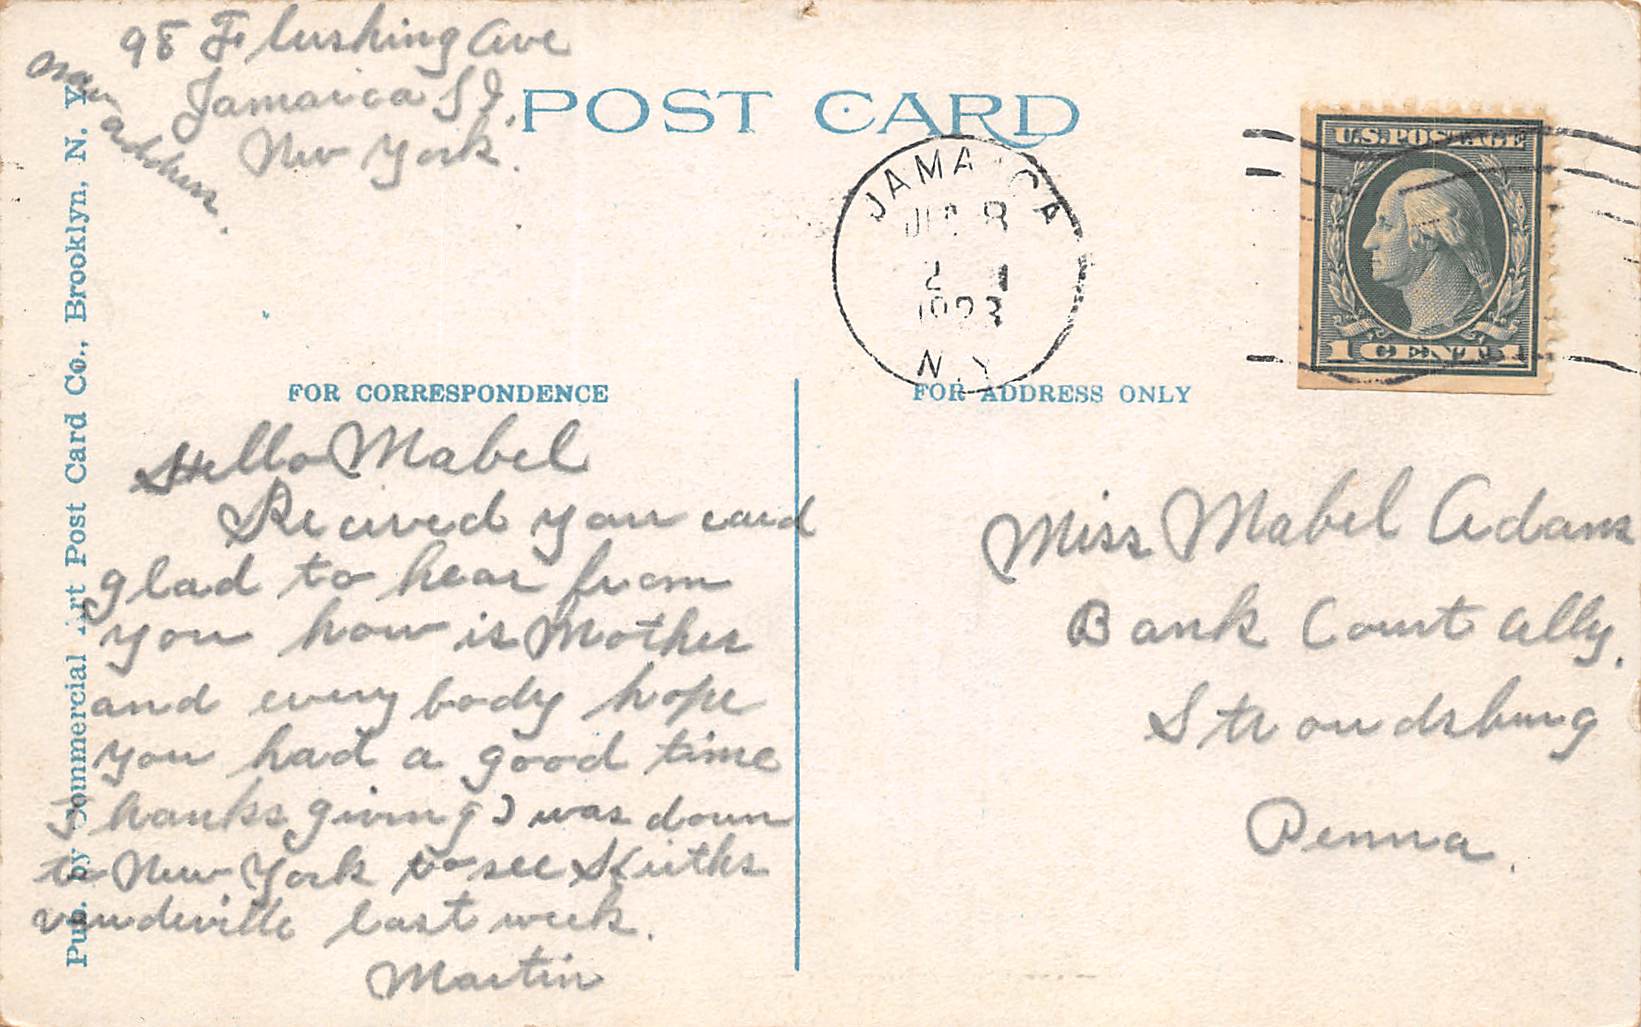 98 Flushing Ave
Jamaica L I.
New York.
new address.
POST CARD
JAMAICA
DEC 8
2
1923
N.Y.
U.S. POSTAGE
1 CENT 1
FOR CORRESPONDENCE
FOR ADDRESS ONLY
Hello Mabel
Received your card
glad to hear from
you how is Mother
and every body hope
you had a good time
Thanksgiving I was down
to New York to see Keiths
vaudeville last week.
Martin
Miss Mabel Adams
Bank Court Ally.
Stroudsburg
Penna.
Pub. by Commercial Art Post Card Co., Brooklyn, N. Y.